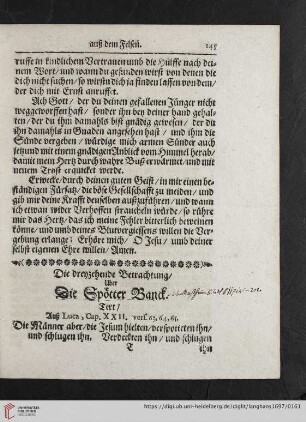 auß dem Felsen. 145
ruffe in kindlichem Vertrauen umb die Hülffe nach dei-
nem Wort/ und wann du gefunden wirst von denen die
dich nicht suchen/ so wirstu dich ja finden lassen von dem/
der dich mit Ernst anruffet.
Ach Gott/ der du deinen gefallenen Jünger nicht
weggeworffen hast/ sonder ihn bey deiner hand gehal-
ten/ der du ihn damahls bist gnädig gewesen/ der du
ihn damahls in Gnaden angesehen hast/ und ihm die
Sünde vergeben/ würdige mich armen Sünder auch
jetzund mit einem gnädigen Anblick vom Himmel herab/
damit mein Hertz durch wahre Buß erwärmet/ und mit
neuem Trost erquicket werde.
Erwecke/ durch deinen guten Geist/ in mir einen be-
ständigen Fürsatz/ die böse Gesellschafft zu meiden/ und
gib mir deine Krafft denselben außzuführen/ und wann
ich etwan wider Verhoffen straucheln würde/ so rühre
mir das Hertz/ das ich meine Fehler bitterlich beweinen
könne/ und umb deines Blutvergiessens willen die Ver-
gebung erlange: Erhöre mich/ O Jesu/ umb deiner
selbst eigenen Ehre willen/ Amen.
Die dreyzehende Betrachtung/
Uber
Die Spötter Banck.
Text/
Auß Luca, Cap. XXII. vers. 63, 64, 65.
Die Männer aber/ die Jesum hielten/ verspotteten ihn/
und schlugen ihn. Verdeckten ihn/ und schlugen
T ihn
http://digi.ub.uni-heidelberg.de/diglit/langhans1697/0161